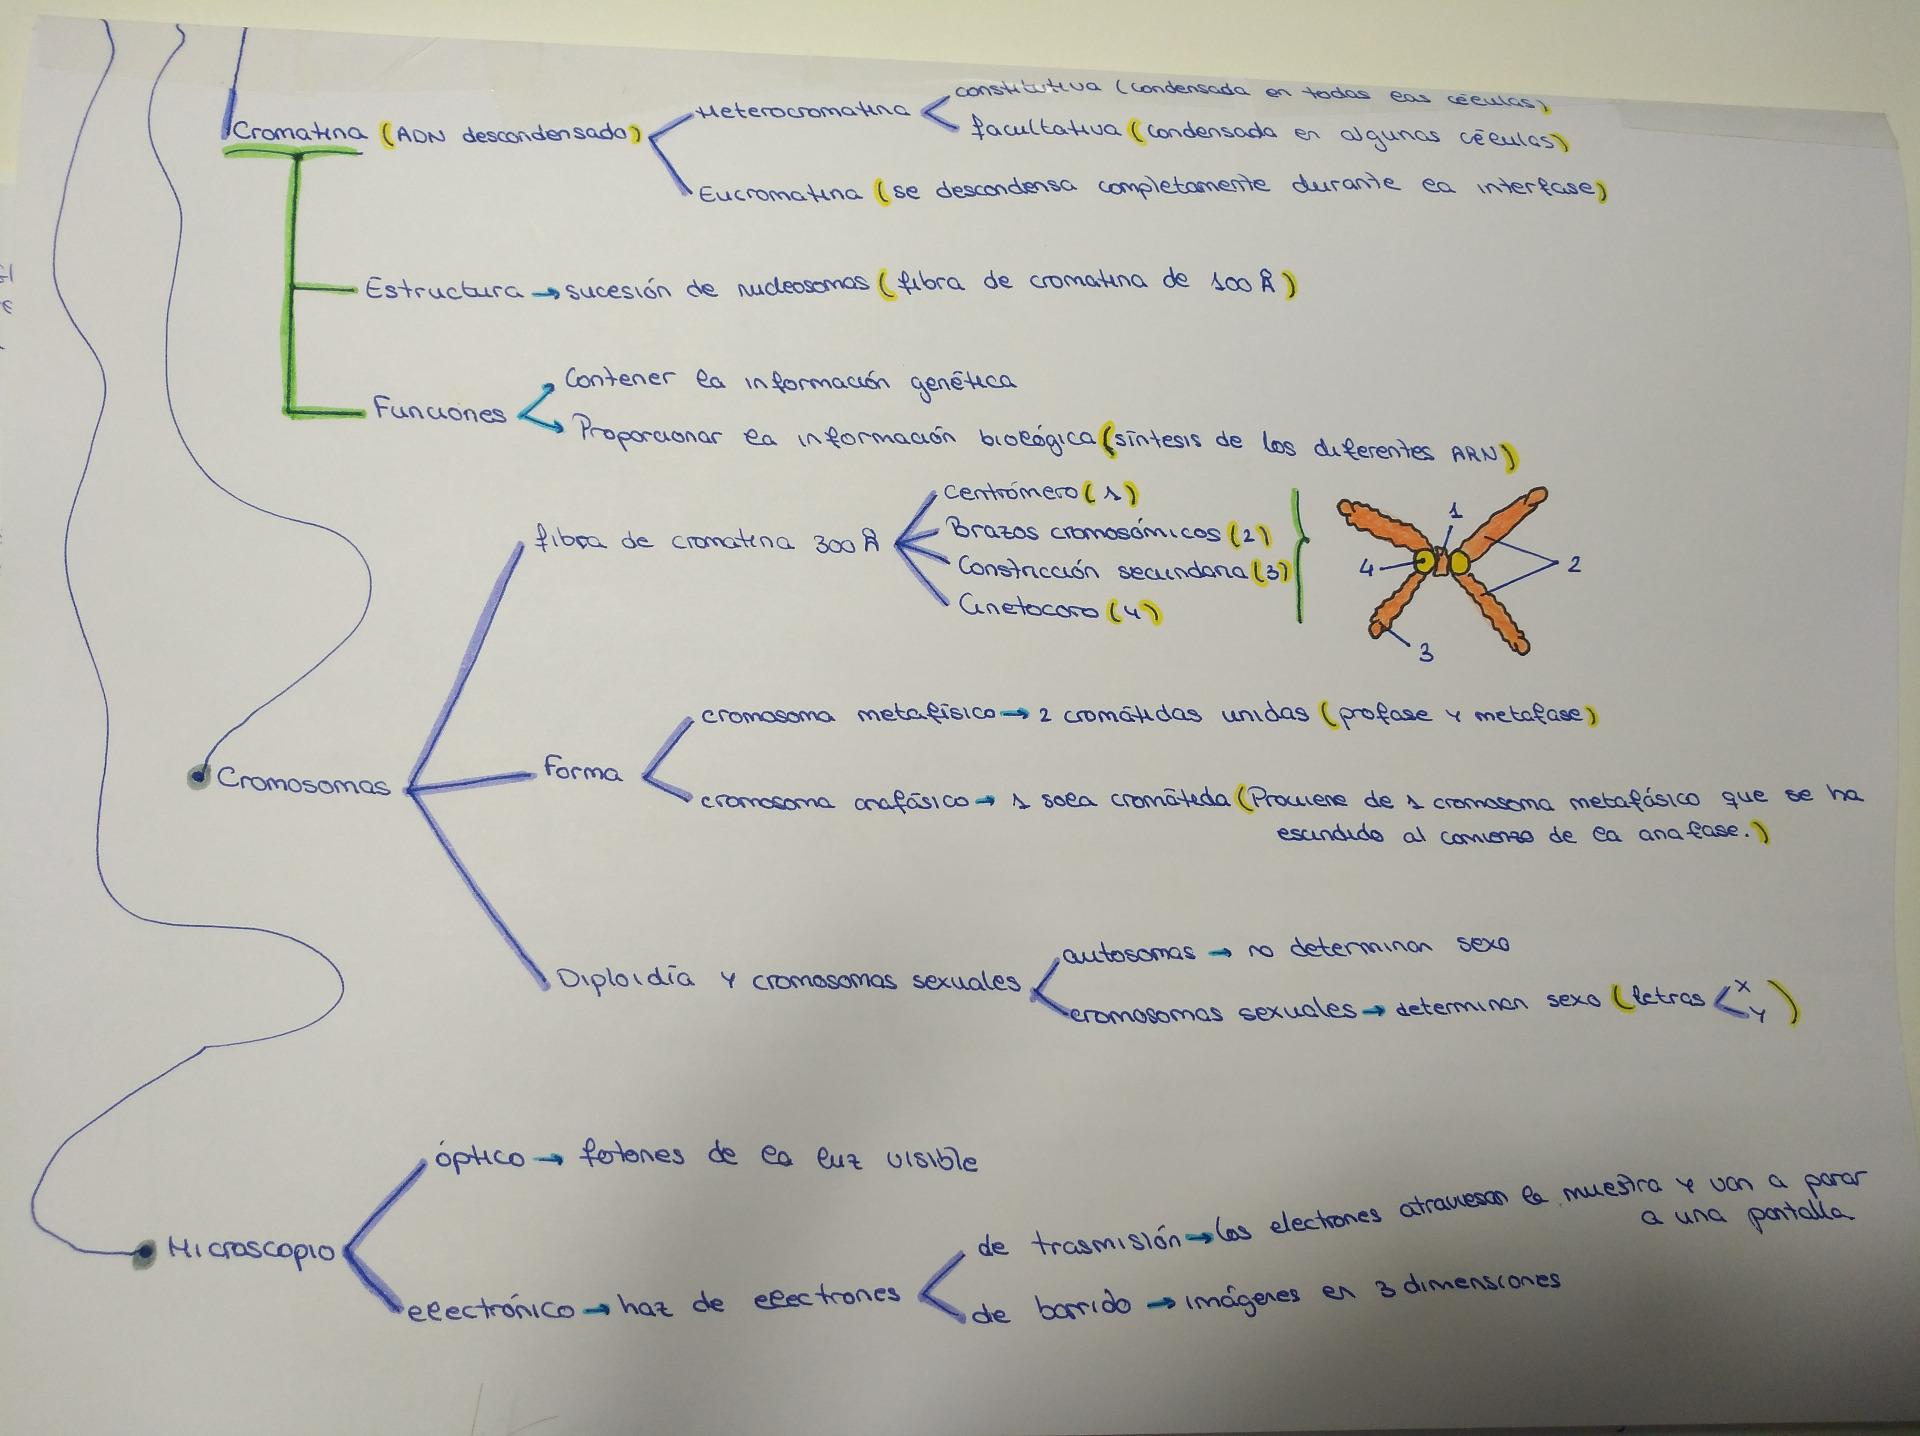 constitutiva (condensada en todas las células)
Heterocromatina
Cromatina (ADN descondensado)
facultativa (condensada en algunas células)
Eucromatina (se descondensa completamente durante la interfase)
Estructura → sucesión de nucleosomas (fibra de cromatina de 100 Å)
Contener la información genética
Funciones
Proporcionar la información biológica (síntesis de los diferentes ARN)
fibra de cromatina 300 Å
Centrómero (1)
Brazos cromosómicos (2)
Constricción secundaria (3)
Cinetocoro (4)
1
4
2
3
Cromosomas
Forma
cromosoma metafísico → 2 cromátidas unidas (profase y metafase)
cromosoma anafásico → 1 sola cromátida (Proviene de 1 cromosoma metafásico que se ha
escindido al comienzo de la anafase.)
Diploidía y cromosomas sexuales
autosomas → no determinan sexo
cromosomas sexuales → determinan sexo (letras < X
Y )
Microscopio
óptico → fotones de la luz visible
electrónico → haz de electrones
de trasmisión → los electrones atraviesan la muestra y van a parar
a una pantalla
de barrido → imágenes en 3 dimensiones